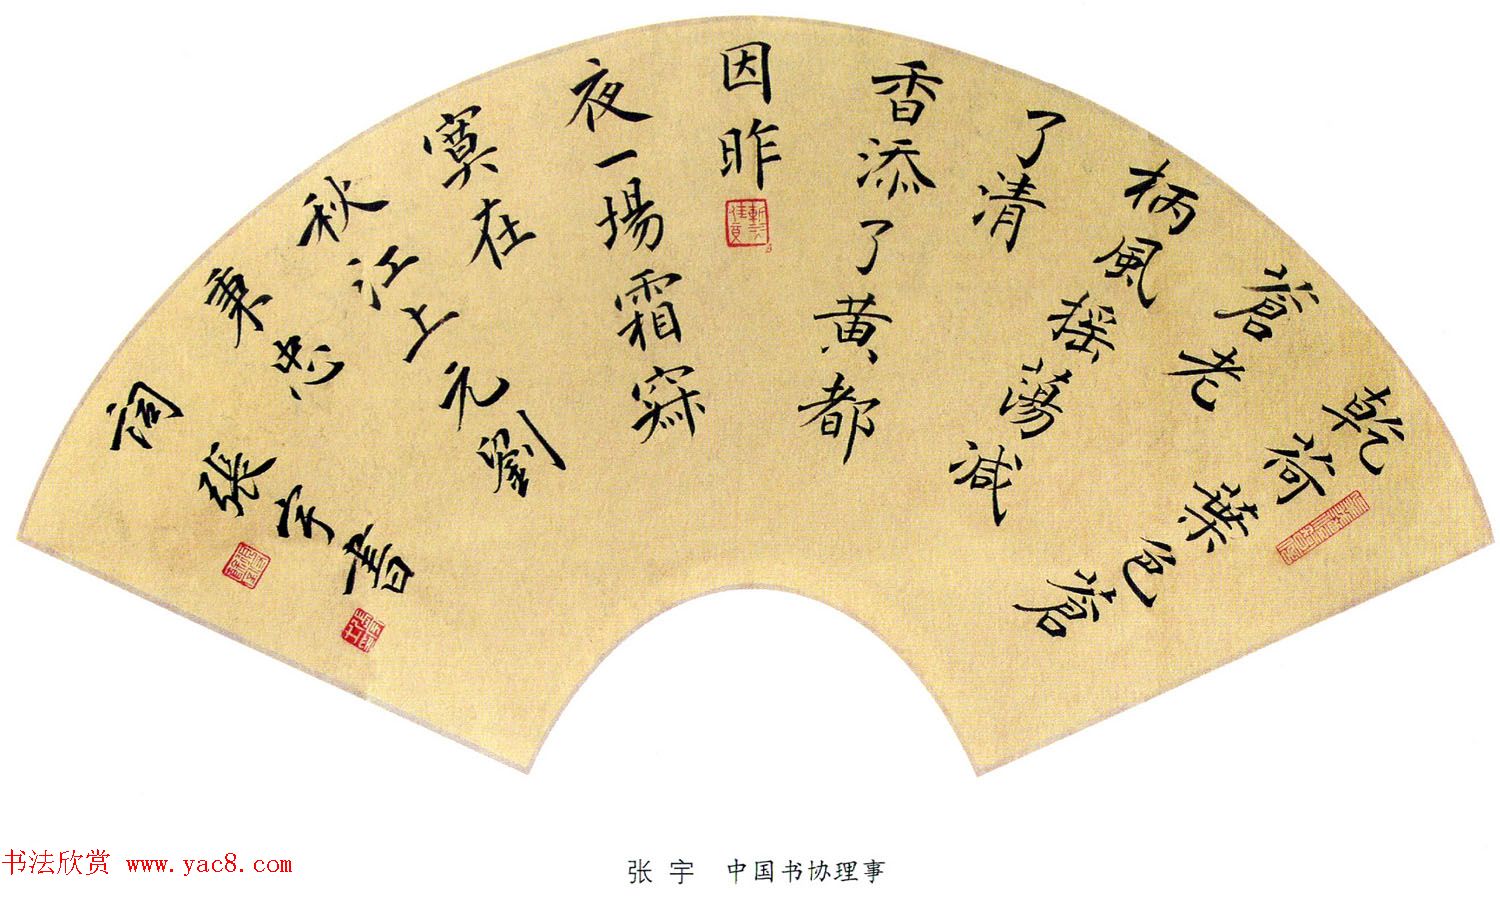 乾荷葉色蒼
蒼老
柄風摇蕩減
了清
香添了黄都
因昨
夜一場霜寂
寞在
秋江上元劉
秉忠
詞張宇書
书法欣赏 www.yac8.com
张宇 中国书协理事